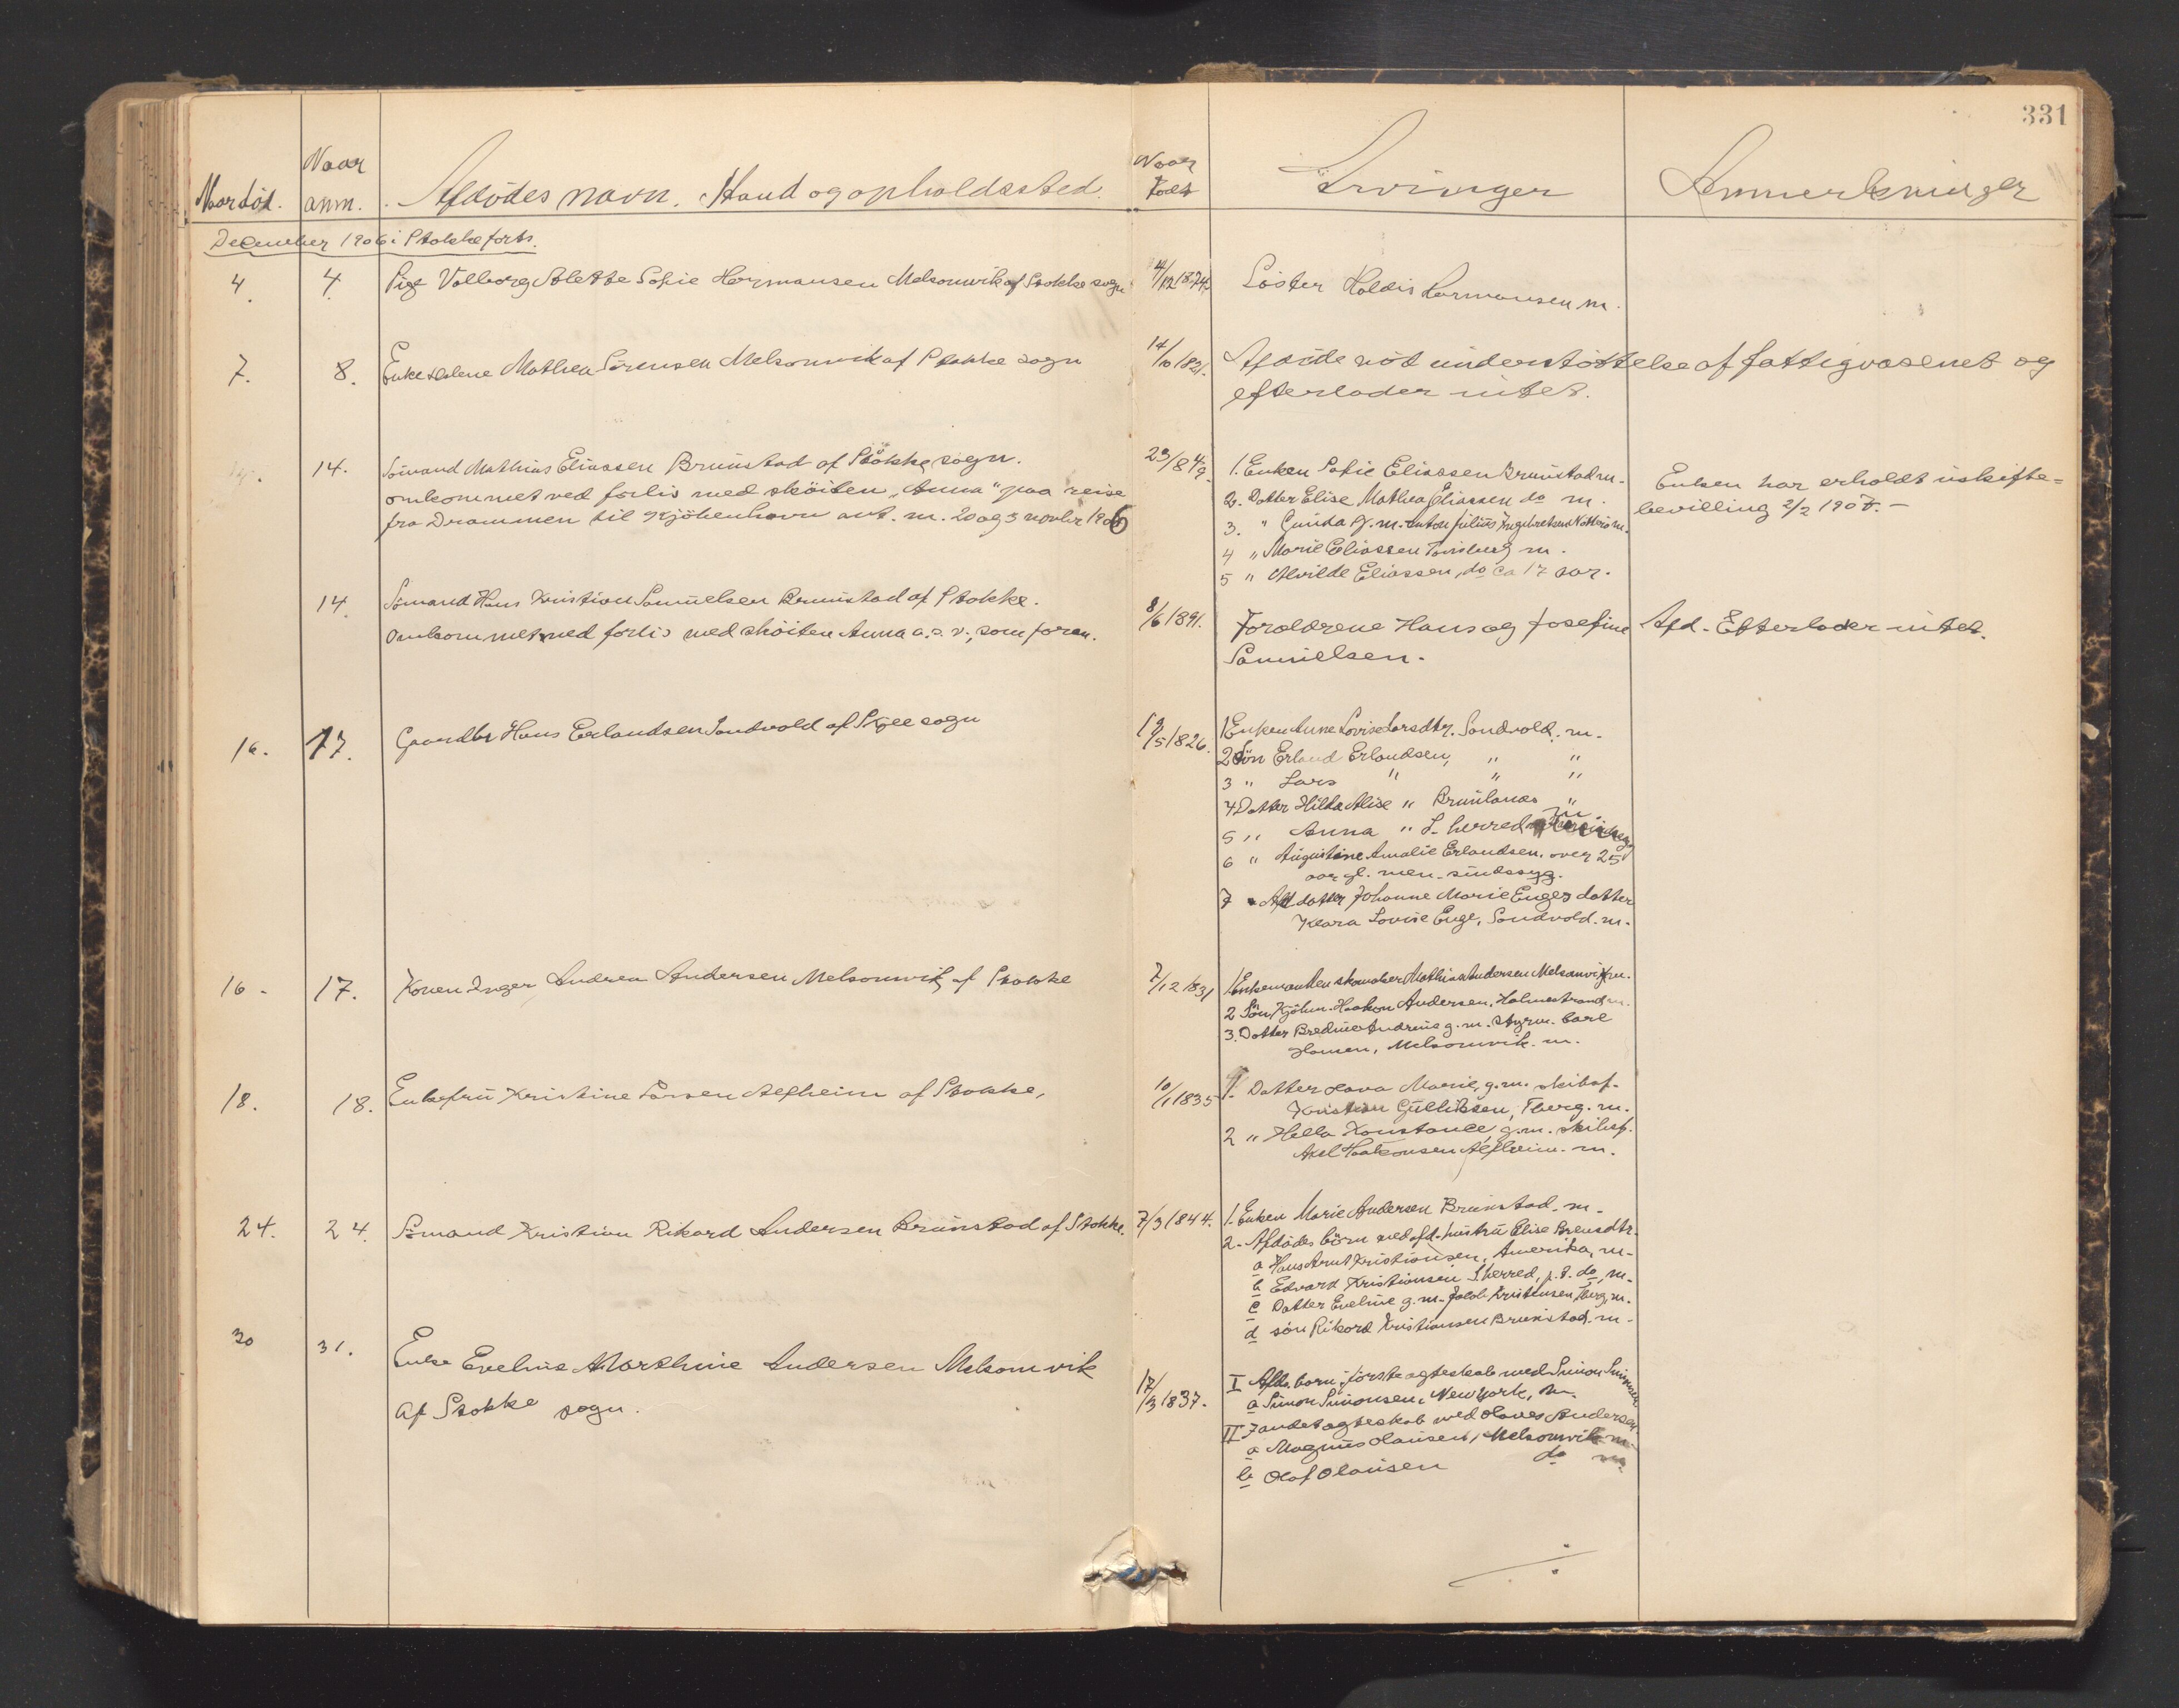 331
Naar död. Naar anm. Afdödes navn. Stand og opholdssted. Naar födt Arvinger Anmerkninger
December 1906 i Stokke forts.
4. 4. Pige Valborg Alette Sofie Hermansen Melsomvik af Stokke sogn 4/12 1874. Söster Haldis Hermansen m.
7. 8. Enke Helene Mathea Sörensen Melsomvik af Stokke sogn 14/10 1821. Afdöde nöt understöttelse af fattigvæsenet og
efterlader intet.
14. Sömand Mathias Eliassen Brunstad af Stokke sogn.
omkommet ved forlis med sköiten "Anna" paa reise
fra Drammen til Kjöbenhavn ant. m. 20 og 3 novbr 1906
23/8 49. 1. Enken Sofie Eliassen Brunstad m.
2. Datter Elise Mathea Eliassen do m.
3. " Gunda g. m. Anton Julius Ingebretsen m.
4 " Marie Eliassen Tönsberg m.
5 " Alvilde Eliassen, do ca 17 aar.
Enken har erholdt uskifte=
bevilling 2/2 1907. -
14 Sömand Hans Kristian Samuelsen Brunstad af Stokke.
Omkommet ved forlis med sköiten Anna o. s. v., som foran.
8/6 1891. Forældrene Hans og Josefine
Samuelsen.
Afd. Efterlader intet.
16. 17. Gaardbr Hans Erlandsen Sandvold af Skjee sogn
19/5 1826. 1 Enken Anne Lovise Larsdtr. Sandvold. m.
2 Sön Erland Erlandsen, " "
3 " Lars " " "
4 Datter Hilda Alise " Brunlanæs "
5 " Anna " S. herred m.
6 " Augustine Amalie Erlandsen. over 25
aar gl. men sindssyg.
7 Afd datter Johanne Marie Enges datter
Klara Lovise Enge, Sandvold. m.
16 - 17. Konen Inger Andrea Andersen Melsomvik af Stokke
7/12 1831 1 Enkemanden skomaker Mathias Andersen Melsomvik m.
2 Sön Kjöbm. Haakon Andersen, Holmestrand m.
3. Datter Bredine Andrine g. m. styrm. Carl
Hansen, Melsomvik. m.
18. 18. Enkefru Kristine Larsen Alfheim af Stokke,
10/1 1835 1. Datter Hava Marie, g. m. skibsf.
Kristian Gulliksen, Tberg. m.
2 " Hella Konstance g. m. skibsf.
Axel Haakonsen Alfheim. m.
24. 24. Sömand Kristian Rikard Andersen Brunstad af Stokke.
7/3 1844. 1. Enken Marie Andersen Brunstad. m.
2. Afdödes börn med afd. hustru Elise
a Hans Arnt Kristiansen, Amerika, m.
b Edvard Kristiansen S. herred, p. t. do, m.
c Datter Eveline g. m. Jakob Kristensen, Tberg, m.
d sön Rikard Kristiansen Brunstad. m.
30 31. Enke Eveline Marthine Andersen Melsomvik
af Stokke sogn.
17/3 1837. I Afds. barn i förste ægteskab med Simon Simonsen
a Simon Simonsen, New York, m.
II I andet ægteskab med Olaves Andersen.
a Magnus Olausen, Melsomvik m
b Olaf Olausen do m